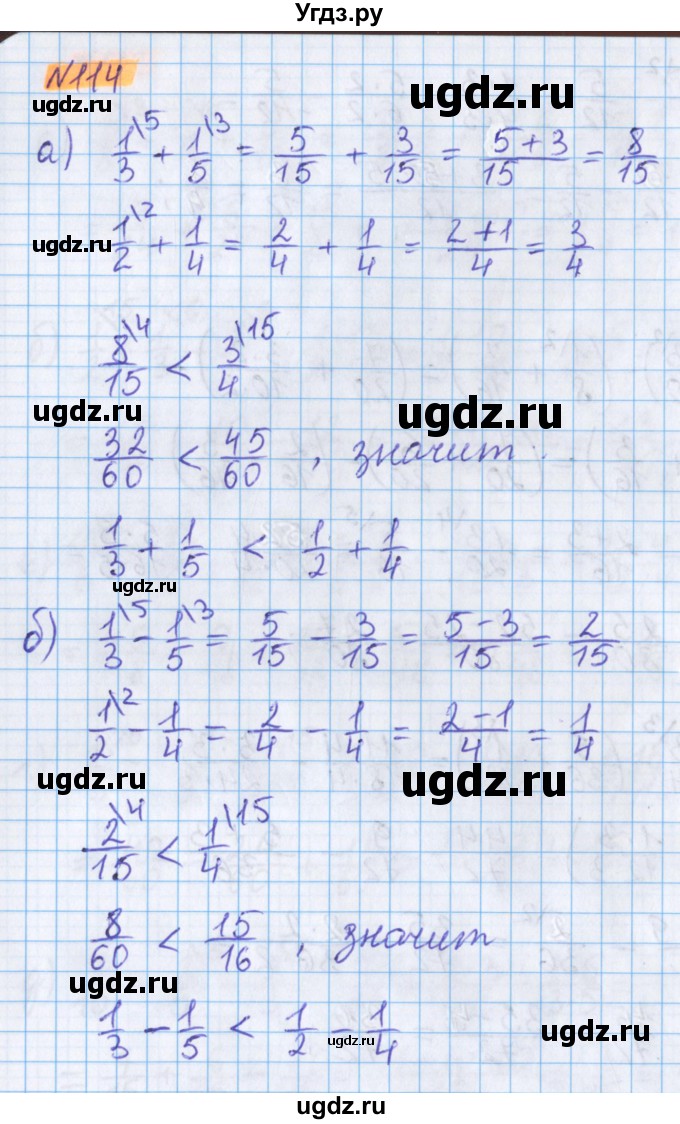 Угдз.ру
N114
ugdz.ru
ugdz.ru
а) 1/3\5 + 1/5\3 = 5/15 + 3/15 = (5+3)/15 = 8/15
ugdz.ru
1/2\2 + 1/4 = 2/4 + 1/4 = (2+1)/4 = 3/4
8/15\4 < 3/4\15
ugdz.ru
ugdz.ru
32/60 < 45/60 , значит
1/3 + 1/5 < 1/2 + 1/4
ugdz.ru
б) 1/3\5 - 1/5\3 = 5/15 - 3/15 = (5-3)/15 = 2/15
1/2\2 - 1/4 = 2/4 - 1/4 = (2-1)/4 = 1/4
ugdz.ru
ugdz.ru
2/15\4 < 1/4\15
8/60 < 15/16 , значит
ugdz.ru
1/3 - 1/5 < 1/2 - 1/4
ugdz.ru
ugdz.ru
ugdz.ru